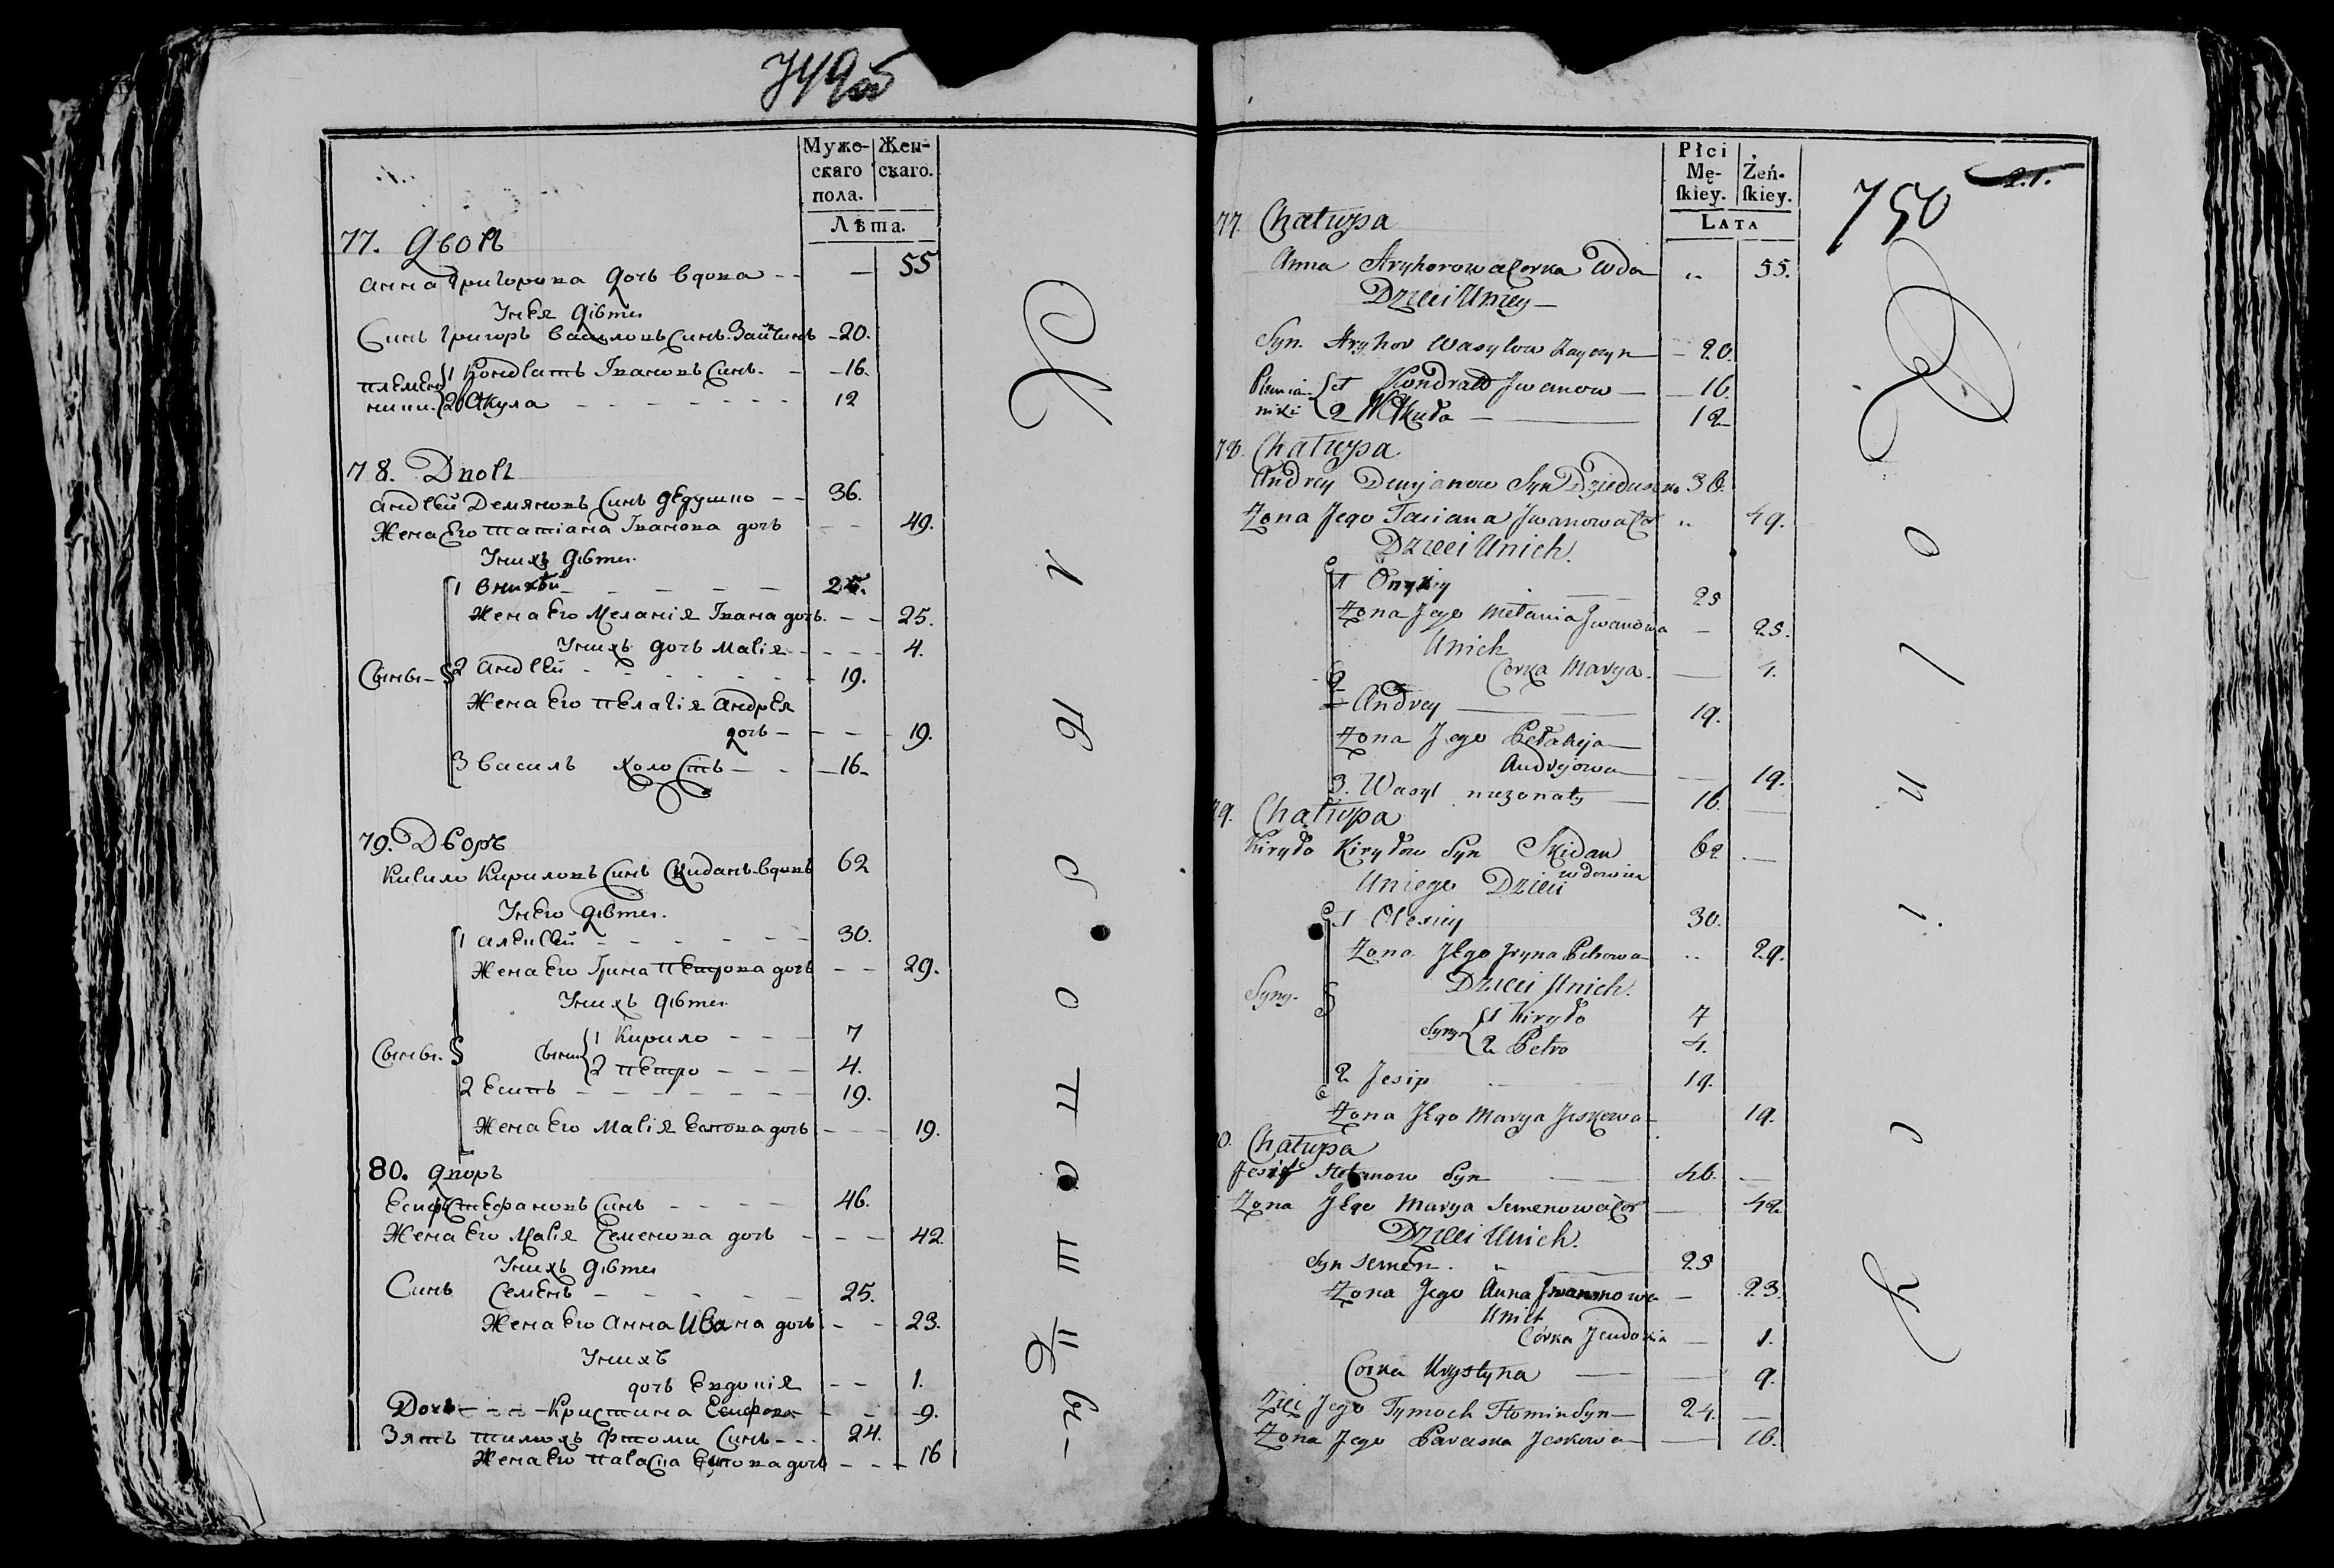 749об
Муже- Жен-
скаго скаго.
пола.
Лѣта.
77. Дворъ
анна Григорова дочь вдова - - — 55
У нея дѣти
Синъ Григоръ Василовъ Синъ Зайчинъ - 20.
племен 1 Кондратъ Івановъ Синъ. - - 16.
ники. 2 Акула - - - - - - - 12
78. Дворъ
андрей Демяновъ Синъ дедушко - - 36.
Жена Его татіана Іванова дочь - - 49.
У нихъ дѣти
1 Оникѣй - - - - - 25.
Жена Его Меланія Івана дочь. - - 25.
У нихъ дочь Марія - - - - 4.
Сыны 2 андрей - - - - - - 19.
Жена Его пелагія андрея
дочь - - - - 19.
3 василь холостъ - - - 16 -
79. Дворъ
Кирило Кириловъ Синъ Скиданъ вдовъ 62
У него дѣти.
1 алексей - - - - - 30.
Жена Его Ірина петрова дочь - - 29.
У нихъ дѣти
Сыны. Сыны 1 Кирило - - - 7
2 петро - - - - 4.
2 Есипъ - - - - - - - 19.
Жена Его Марія Еськова дочь - - - 19.
80. дворъ
Есифъ Стефановъ Синъ - - - - 46.
Жена Его Марія Семенова дочь - - - 42.
У нихъ дѣти
Синъ Семенъ - - - - - 25.
Жена Его Анна Ивана дочь - - 23.
У нихъ
дочь Евдокія - - 1.
Дочь - - - Кристина Есифова - - 9.
Зять тимохъ фтоми Синъ - - - 24.
Жена Его параска Еськова дочь - - - 16
Płci
Mę- Żeń-
ſkiey. ſkiey.
LATA
750
21.
77. Chałupa
Anna Hryhorowa Corka Wdo — .. 55.
Dzieci Uniey —
Syn. Hryhor Wasylow Zayczyn — 20.
Plemia- 1 Kondrat Jwanow — 16.
niki 2 Akuła — 12
78. Chałupa.
Andrey Demjanow Syn Dzieduszko 36.
Żona Jego Taciana Jwanowa Cor .. 49.
Dzieci Unich.
1 Onykiy — 25
Żona Jego Mełania Jwanowa — 25.
Unich
Corka Marya. — 4.
2 Andrey — 19.
Żona Jego Pełaheja
Andrejowa — 19.
3. Wasyl nieżonaty — 16.
79. Chałupa
Kiryło Kiryłow Syn Skidan 62 —
wdowiec
Uniego Dzieci
1 Olexiey 30.
Żona Jego Jryna Petrowa .. 29.
Syny. Dzieci Unich.
Syny 1 Kiryło 7
2 Petro 4.
2 Jesip 19.
Żona Jego Marya Jeskowa — 19.
80. Chałupa
Jesif Stefanow Syn — 46. —
Żona Jego Marya Semenowa Cor — 42
Dzieci Unich.
Syn Semen. — 25
Żona Jego Anna Jwanowa — 23.
Unich
Córka Jeudokia — 1.
Corka Krystyna — 9.
Zięć Jego Tymoch Ftomin Syn — 24. —
Żona Jego Paraska Jeskowa — 16.